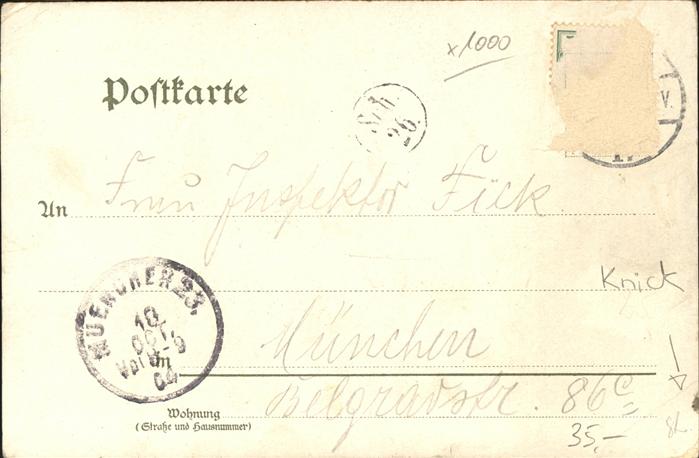 x1000
Postkarte
V.
An Frau Inspektor Fick
Knick
MUENCHEN 23.
10.
OCT.
Vorm
8-9
04
München
Belgradstr. 86c
Wohnung
(Straße und Hausnummer)
35,-